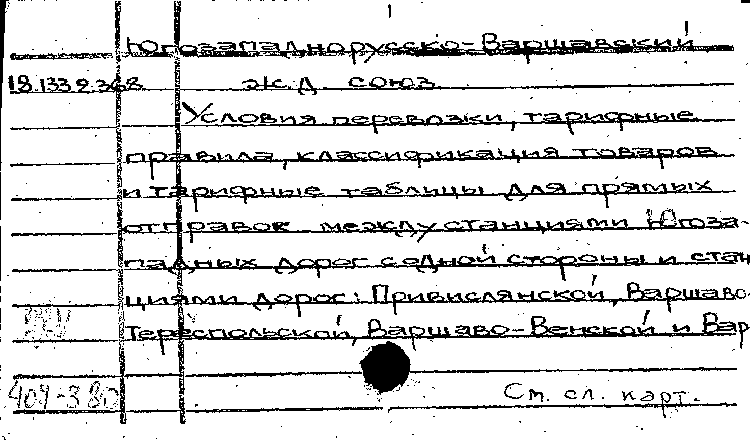 Югозападнорусско-Варшавский
18.133.9.368 ж.д союз
Условия перевозки, тарифные
правила, классификация товаров
и тарифные таблицы для прямых
отправок между станциями Югоза-
падных дорог с одной стороны и стан
циями дорог: Привислянской, Варшаво-
Тереспольской, Варшаво-Венской и Вар
404-380
См. сл. карт.